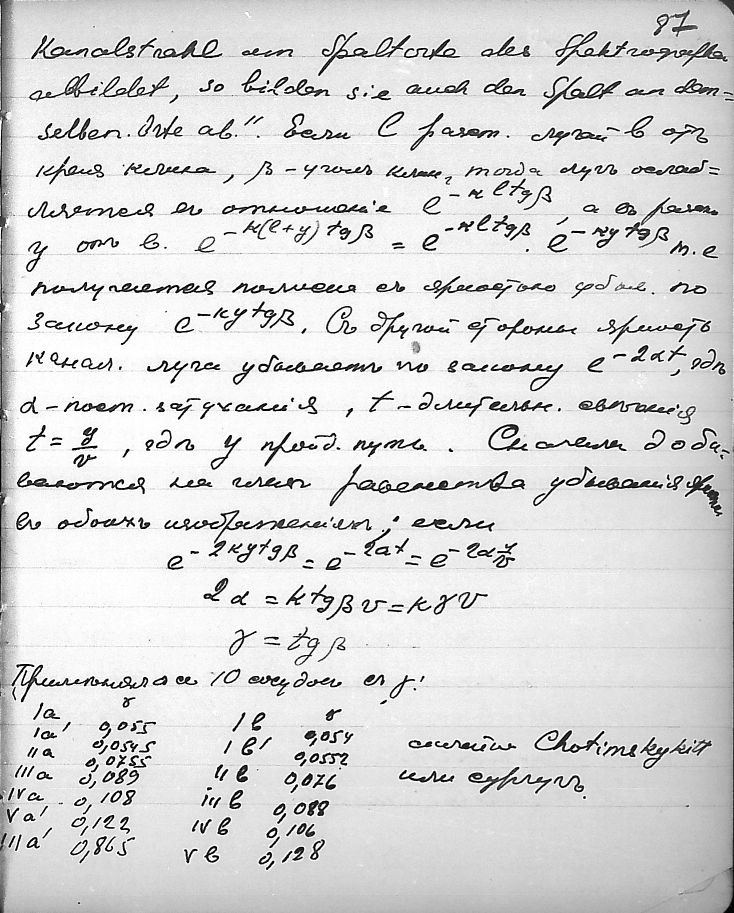 87
Kanalstrahl am Spaltorte des Spektrografen
abbildet, so bilden sie auch den Spalt an dem=
selben Orte ab.". Если l разст. лучей в отъ
края клина, β - уголъ клин., тогда лучъ ослаб=
ляется въ отношеніе e^{-κ l tg β}, а въ разст.
y отъ в. e^{-κ(l+y) tg β} = e^{-κ l tg β} · e^{-κ y tg β} т. е
получается полоска съ яркостью убыв. по
закону e^{-κ y tg β}. Съ другой стороны яркость
канал. луча убываетъ по закону e^{-2αt}, гдѣ
α - пост. затуханія, t - длительн. свѣченія
t = y/v, гдѣ y пройд. путь. Сначала доби-
ваются на глазъ равенства убыванія яркости
въ обоихъ изображеніяхъ; если
e^{-2κ y tg β} = e^{-2αt} = e^{-2α y/v}
2α = κ tg β v = κ γ v
γ = tg β
Примѣнялося 10 сосудовъ съ γ:
γ γ
Ia 0,055 I b 0,054
Ia' 0,0545 I b' 0,0552
IIa 0,0755 II b 0,076
IIIa 0,089 III b 0,088
IVa 0,108 IV b 0,106
Va' 0,122 V b 0,128
IIIa' 0,865
склейка Chotimskykitt
или сургучъ.